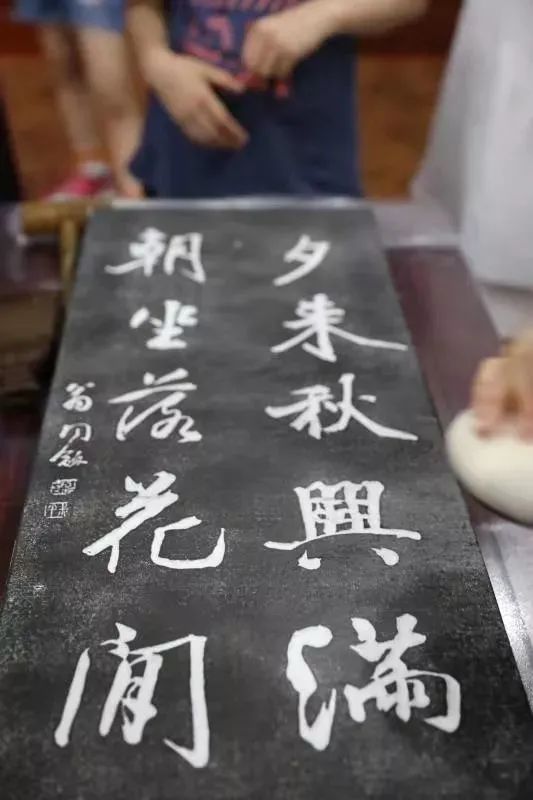 夕来秋興滿
朝坐落花閒
翁同龢